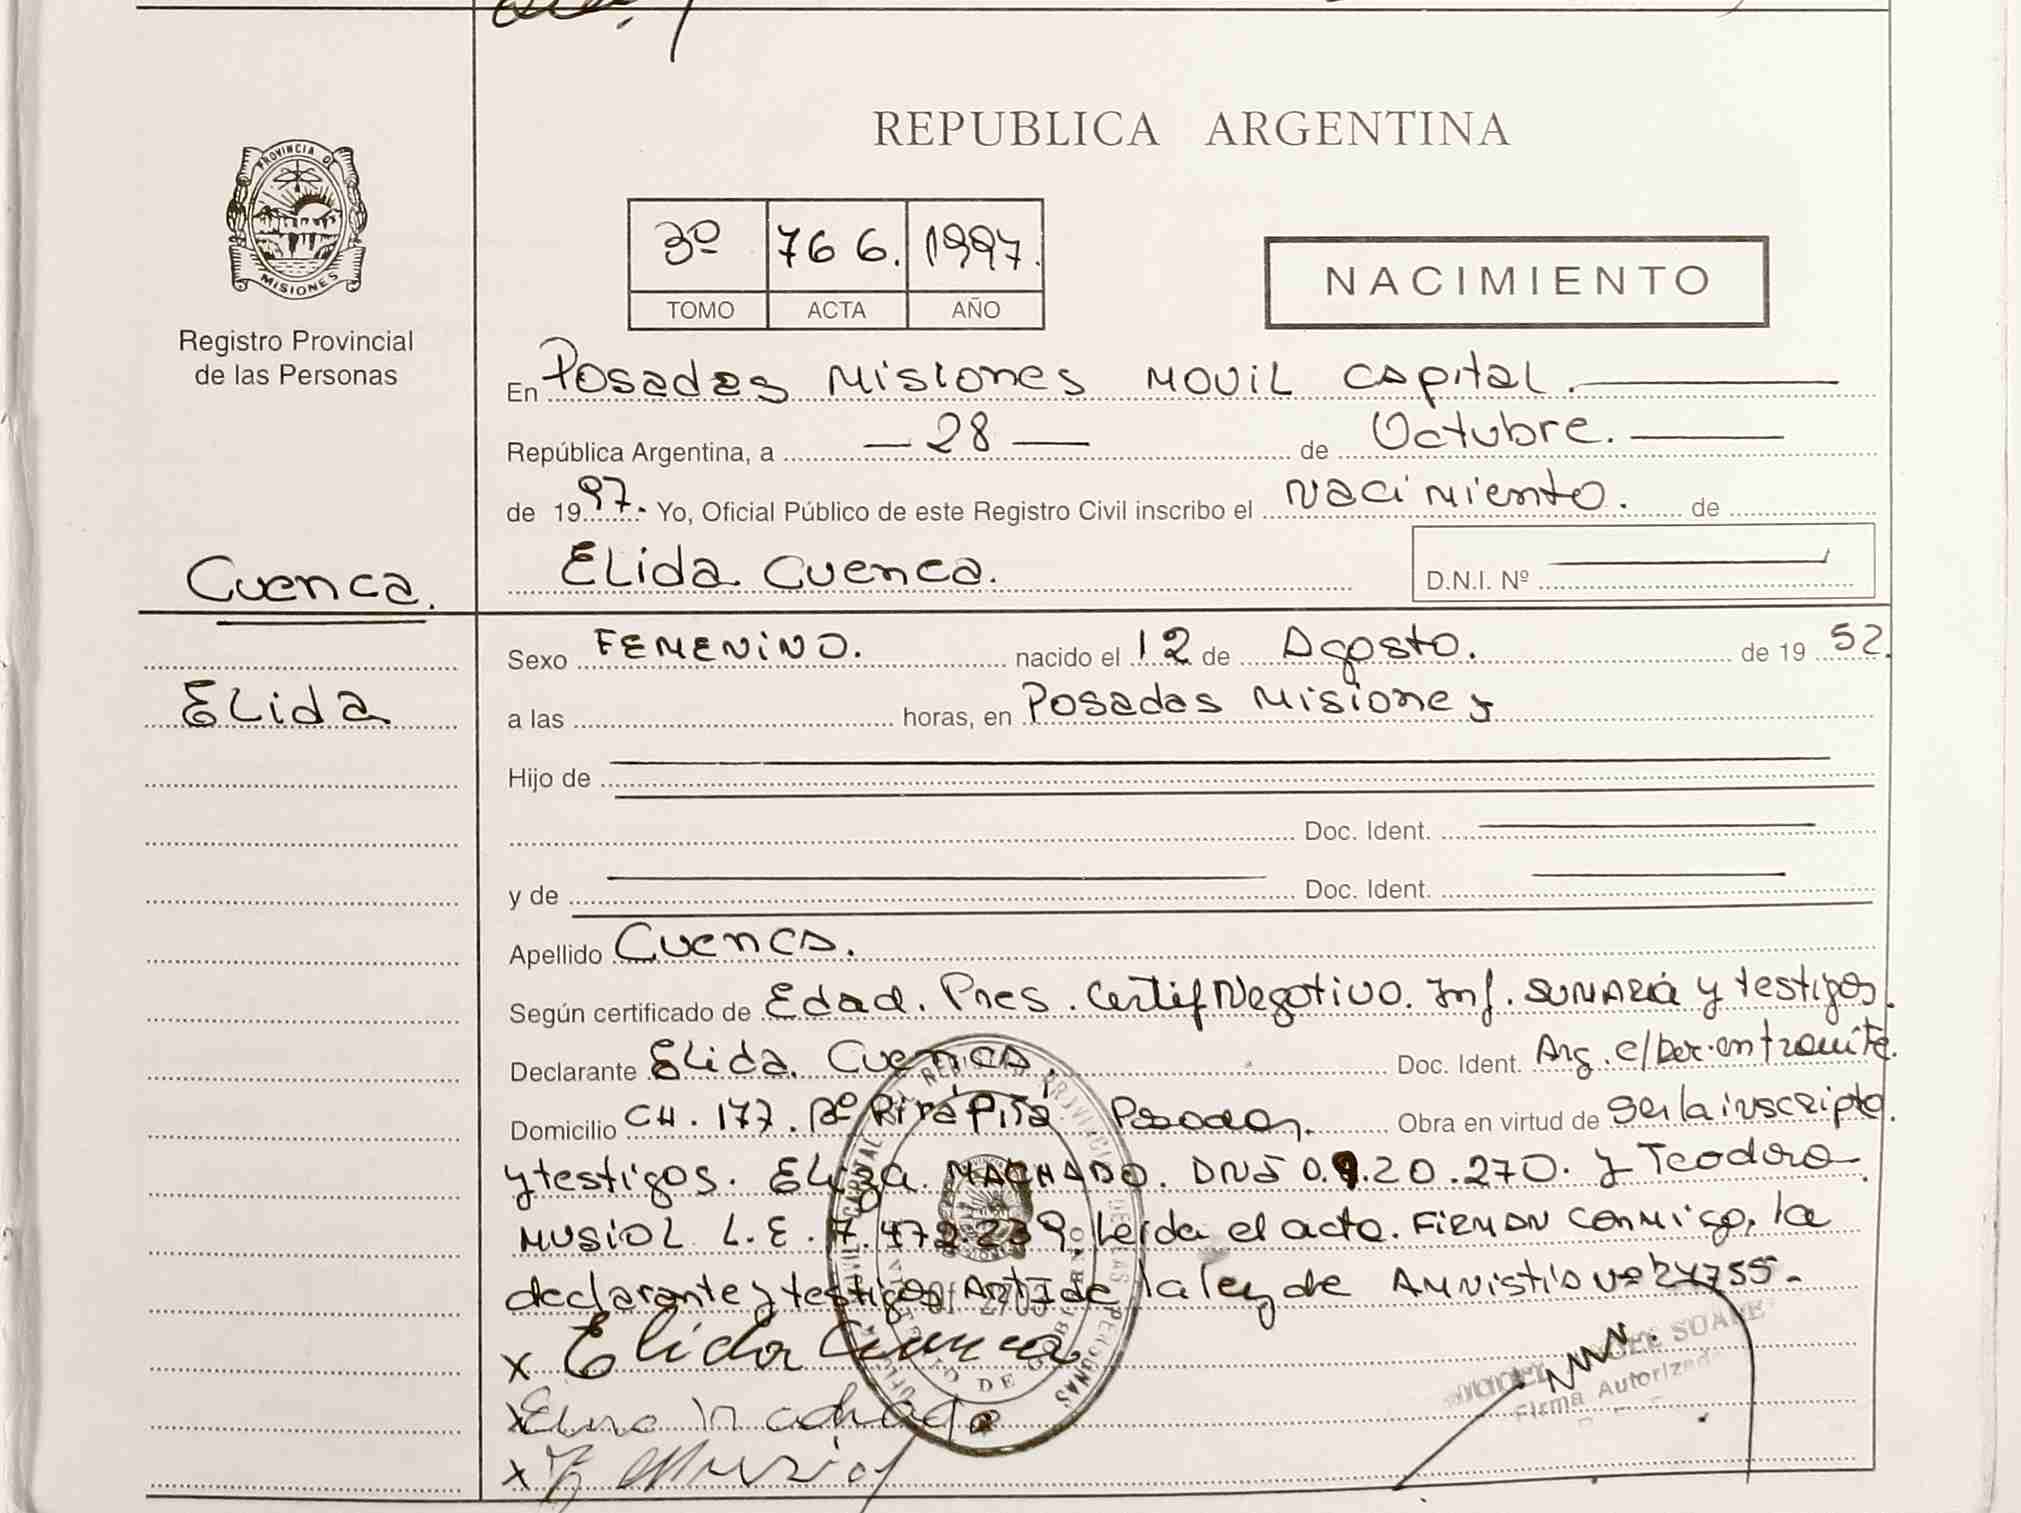 REPUBLICA ARGENTINA
PROVINCIA DE
MISIONES
Registro Provincial
de las Personas
3º 766. 1997.
TOMO ACTA AÑO
NACIMIENTO
En Posadas Misiones Movil Capital.
República Argentina, a — 28 — de Octubre.
de 1997. Yo, Oficial Público de este Registro Civil inscribo el Nacimiento. de
Cuenca.
Elida Cuenca. D.N.I. Nº
Sexo FEMENINO. nacido el 12 de Agosto. de 1952.
Elida
a las horas, en Posadas Misiones
Hijo de
Doc. Ident.
y de Doc. Ident.
Apellido Cuenca.
Según certificado de Edad. Pres. Certif Negativo. Inf. SUMARIA y testigos.
Declarante Elida Cuenca. Doc. Ident. Arg. c/Doc. en tramite.
Domicilio CH. 177. Bº Pirá Pitá Posadas. Obra en virtud de ser la inscripta.
y testigos. Eliza MACHADO. DNI 0.9.20.270. y Teodoro
MUSIOL L.E. 7.472.239. Leida el acta. FIRMAN conmigo, la
declarante y testigos Art 7 de la ley de AMNISTIA Nº 24755.
x Elida Cuenca
x Machado
x Musiol
SOARE
Firma Autorizada